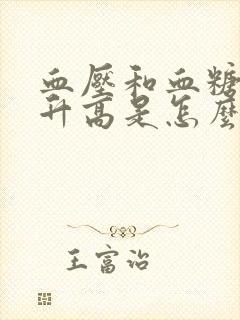 血壓和血糖
升高是怎麼
王富治